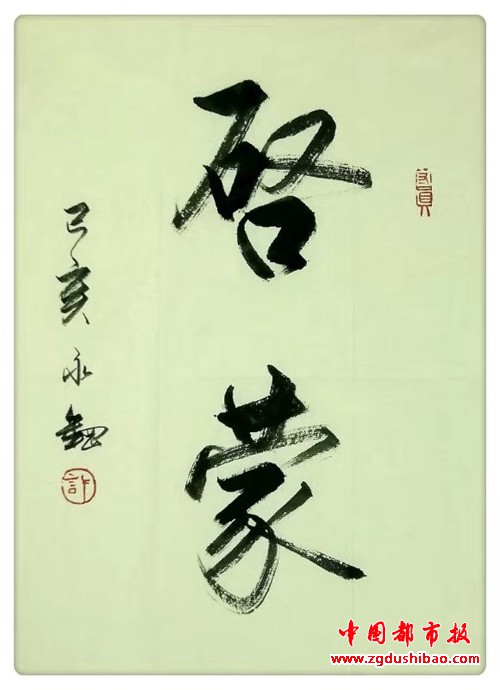 啓蒙
己亥 永
許
中国都市报
www.zgdushibao.com